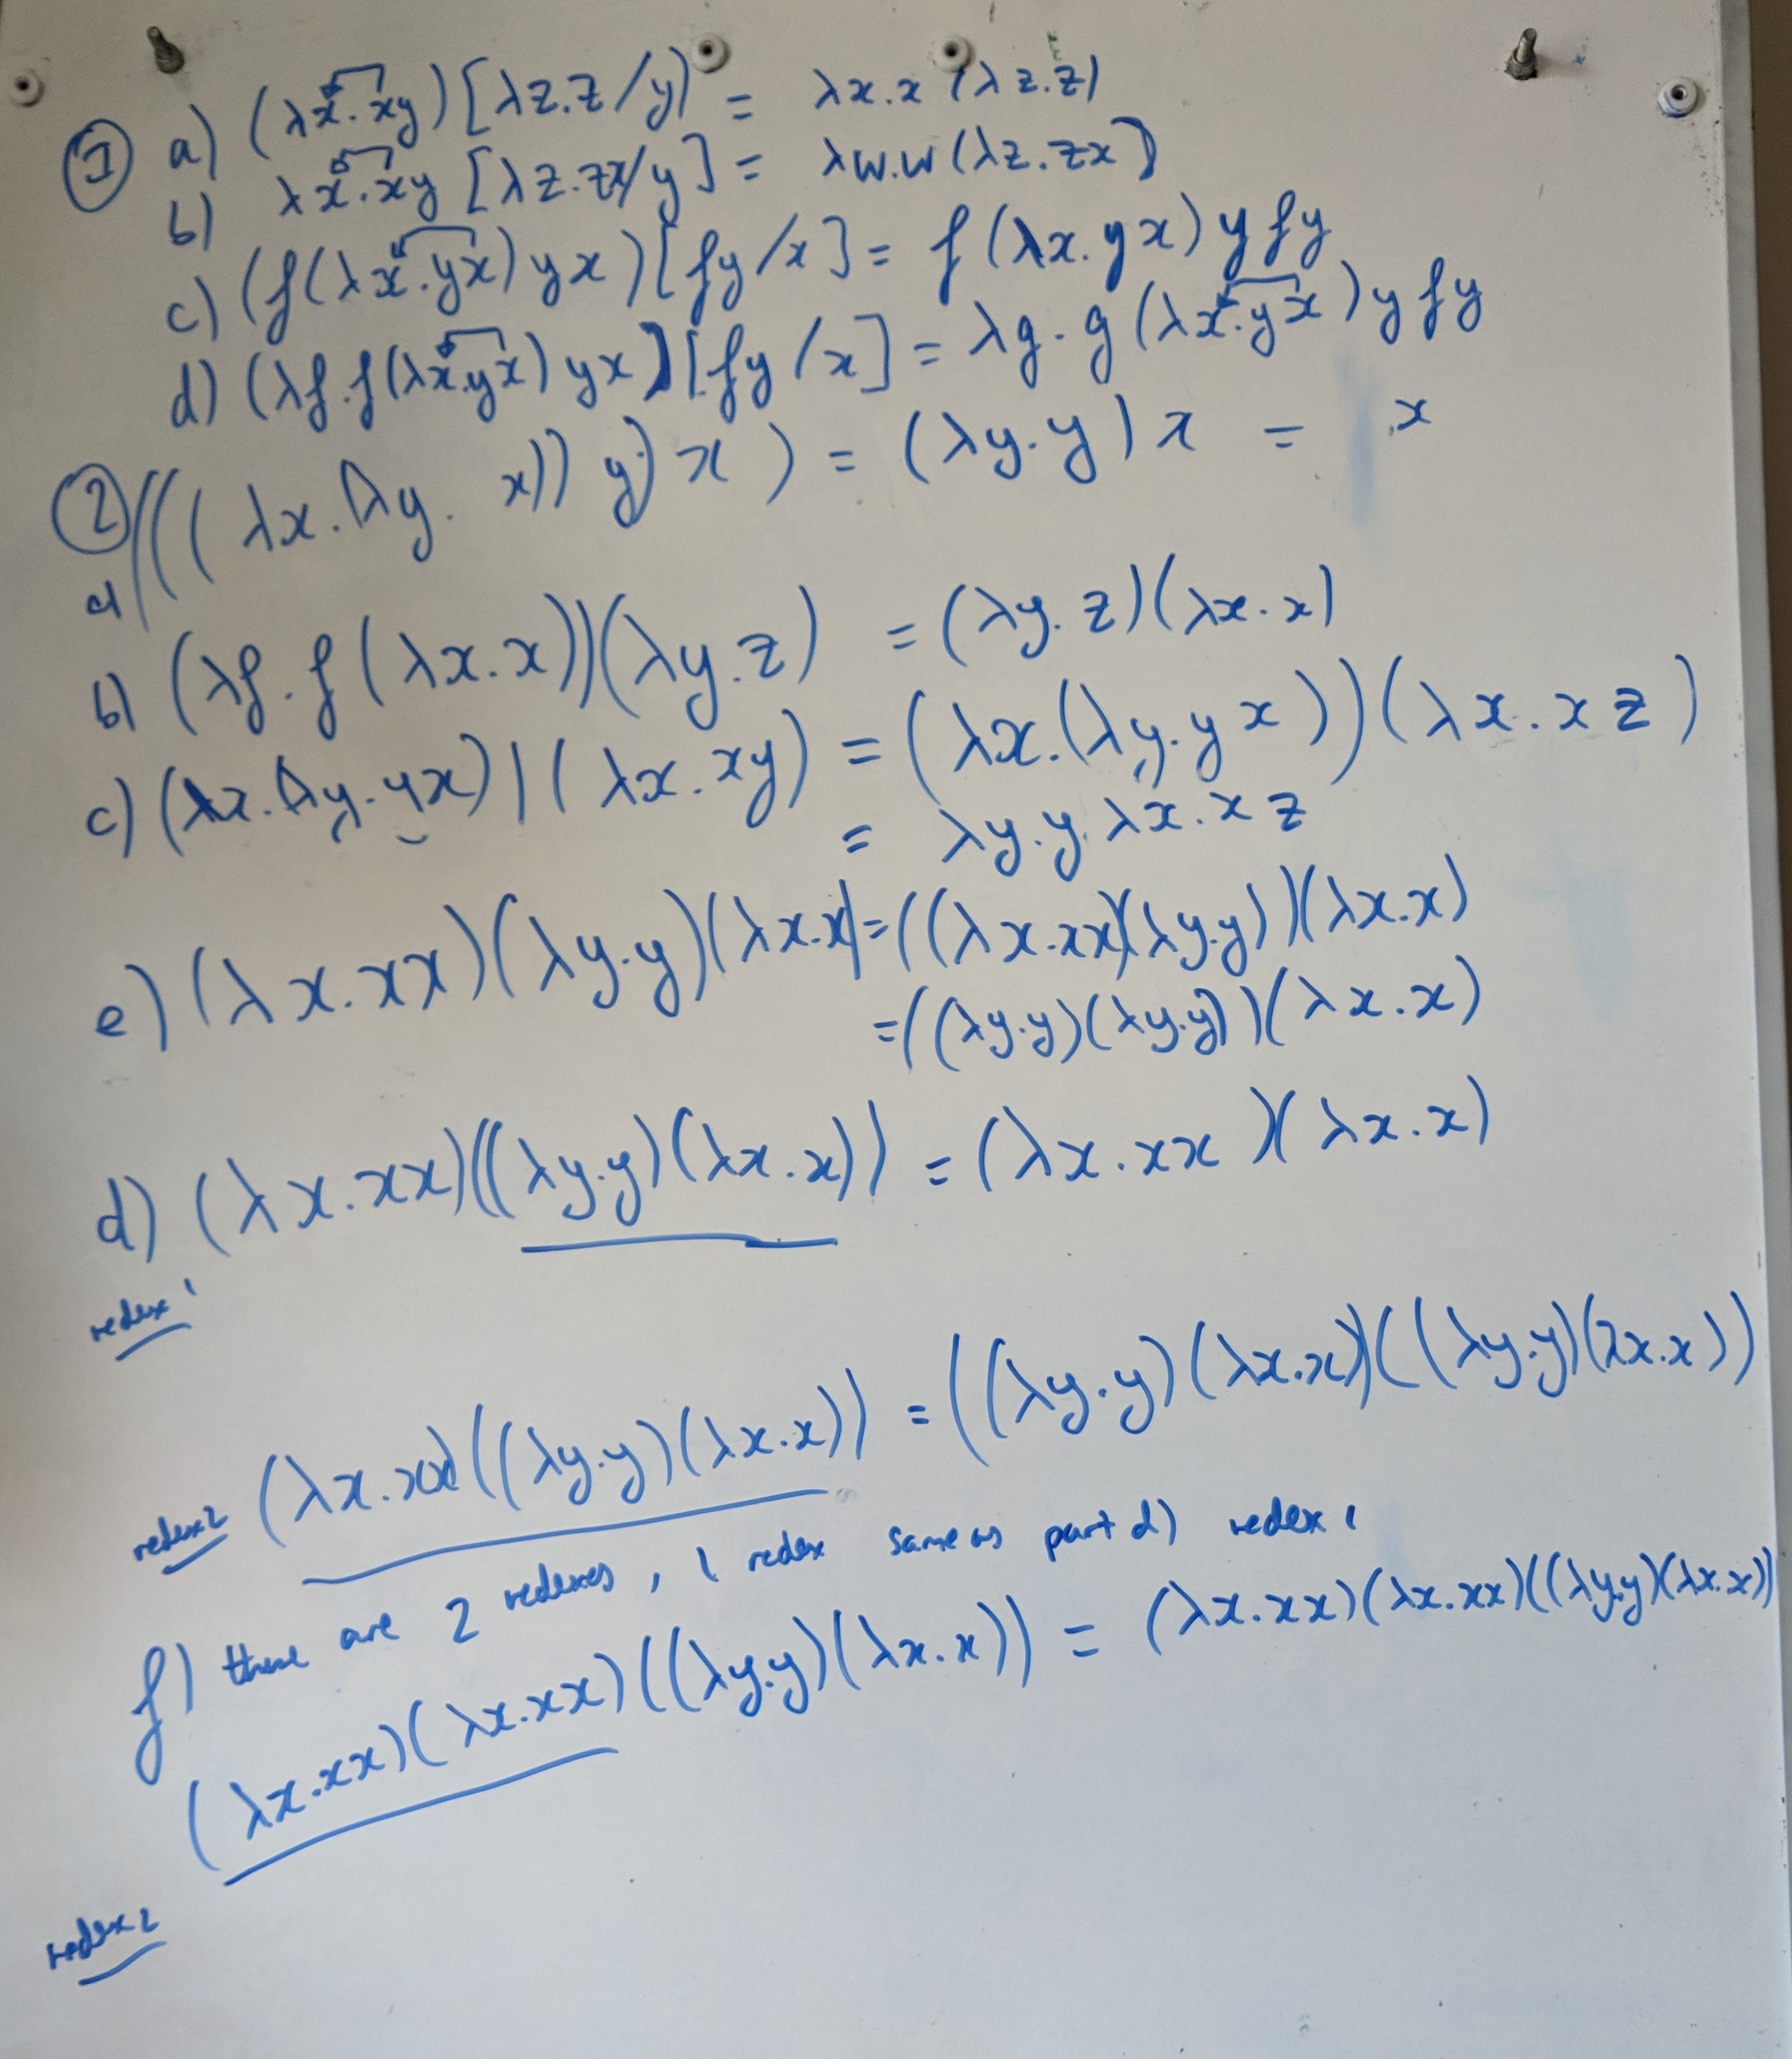 ① a) (λx.xy)[λz.z/y) = λx.x (λz.z)
b) λx.xy [λz.zx/y] = λw.w(λz.zx)
c) (f(λx.yx)yx)[fy/x] = f(λx.yx)yfy
d) (λf.f(λx.yx)yx)[fy/x] = λg.g(λx.yx)yfy
② a) (((λx.(λy.x))y)x) = (λy.y)x = x
b) (λf.f(λx.x))(λy.z) = (λy.z)(λx.x)
c) (λx.(λy.yx))(λx.xy) = (λx.(λy.yx))(λx.xz)
= λy.y.λx.xz
e) (λx.xx)(λy.y)(λx.x) = ((λx.xx)(λy.y))(λx.x)
= ((λy.y)(λy.y))(λx.x)
d) (λx.xx)((λy.y)(λx.x)) = (λx.xx)(λx.x)
redex 1
redex 2 (λx.xx)((λy.y)(λx.x)) = ((λy.y)(λx.x))((λy.y)(λx.x))
f) there are 2 redexes, 1 redex same as part d) redex 1
(λx.xx)(λx.xx)((λy.y)(λx.x)) = (λx.xx)(λx.xx)((λy.y)(λx.x))
redex 2